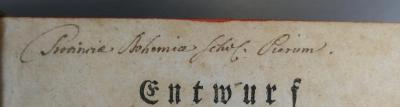 Provinciæ Bohemiæ Schol. Piarum.
Entwurf